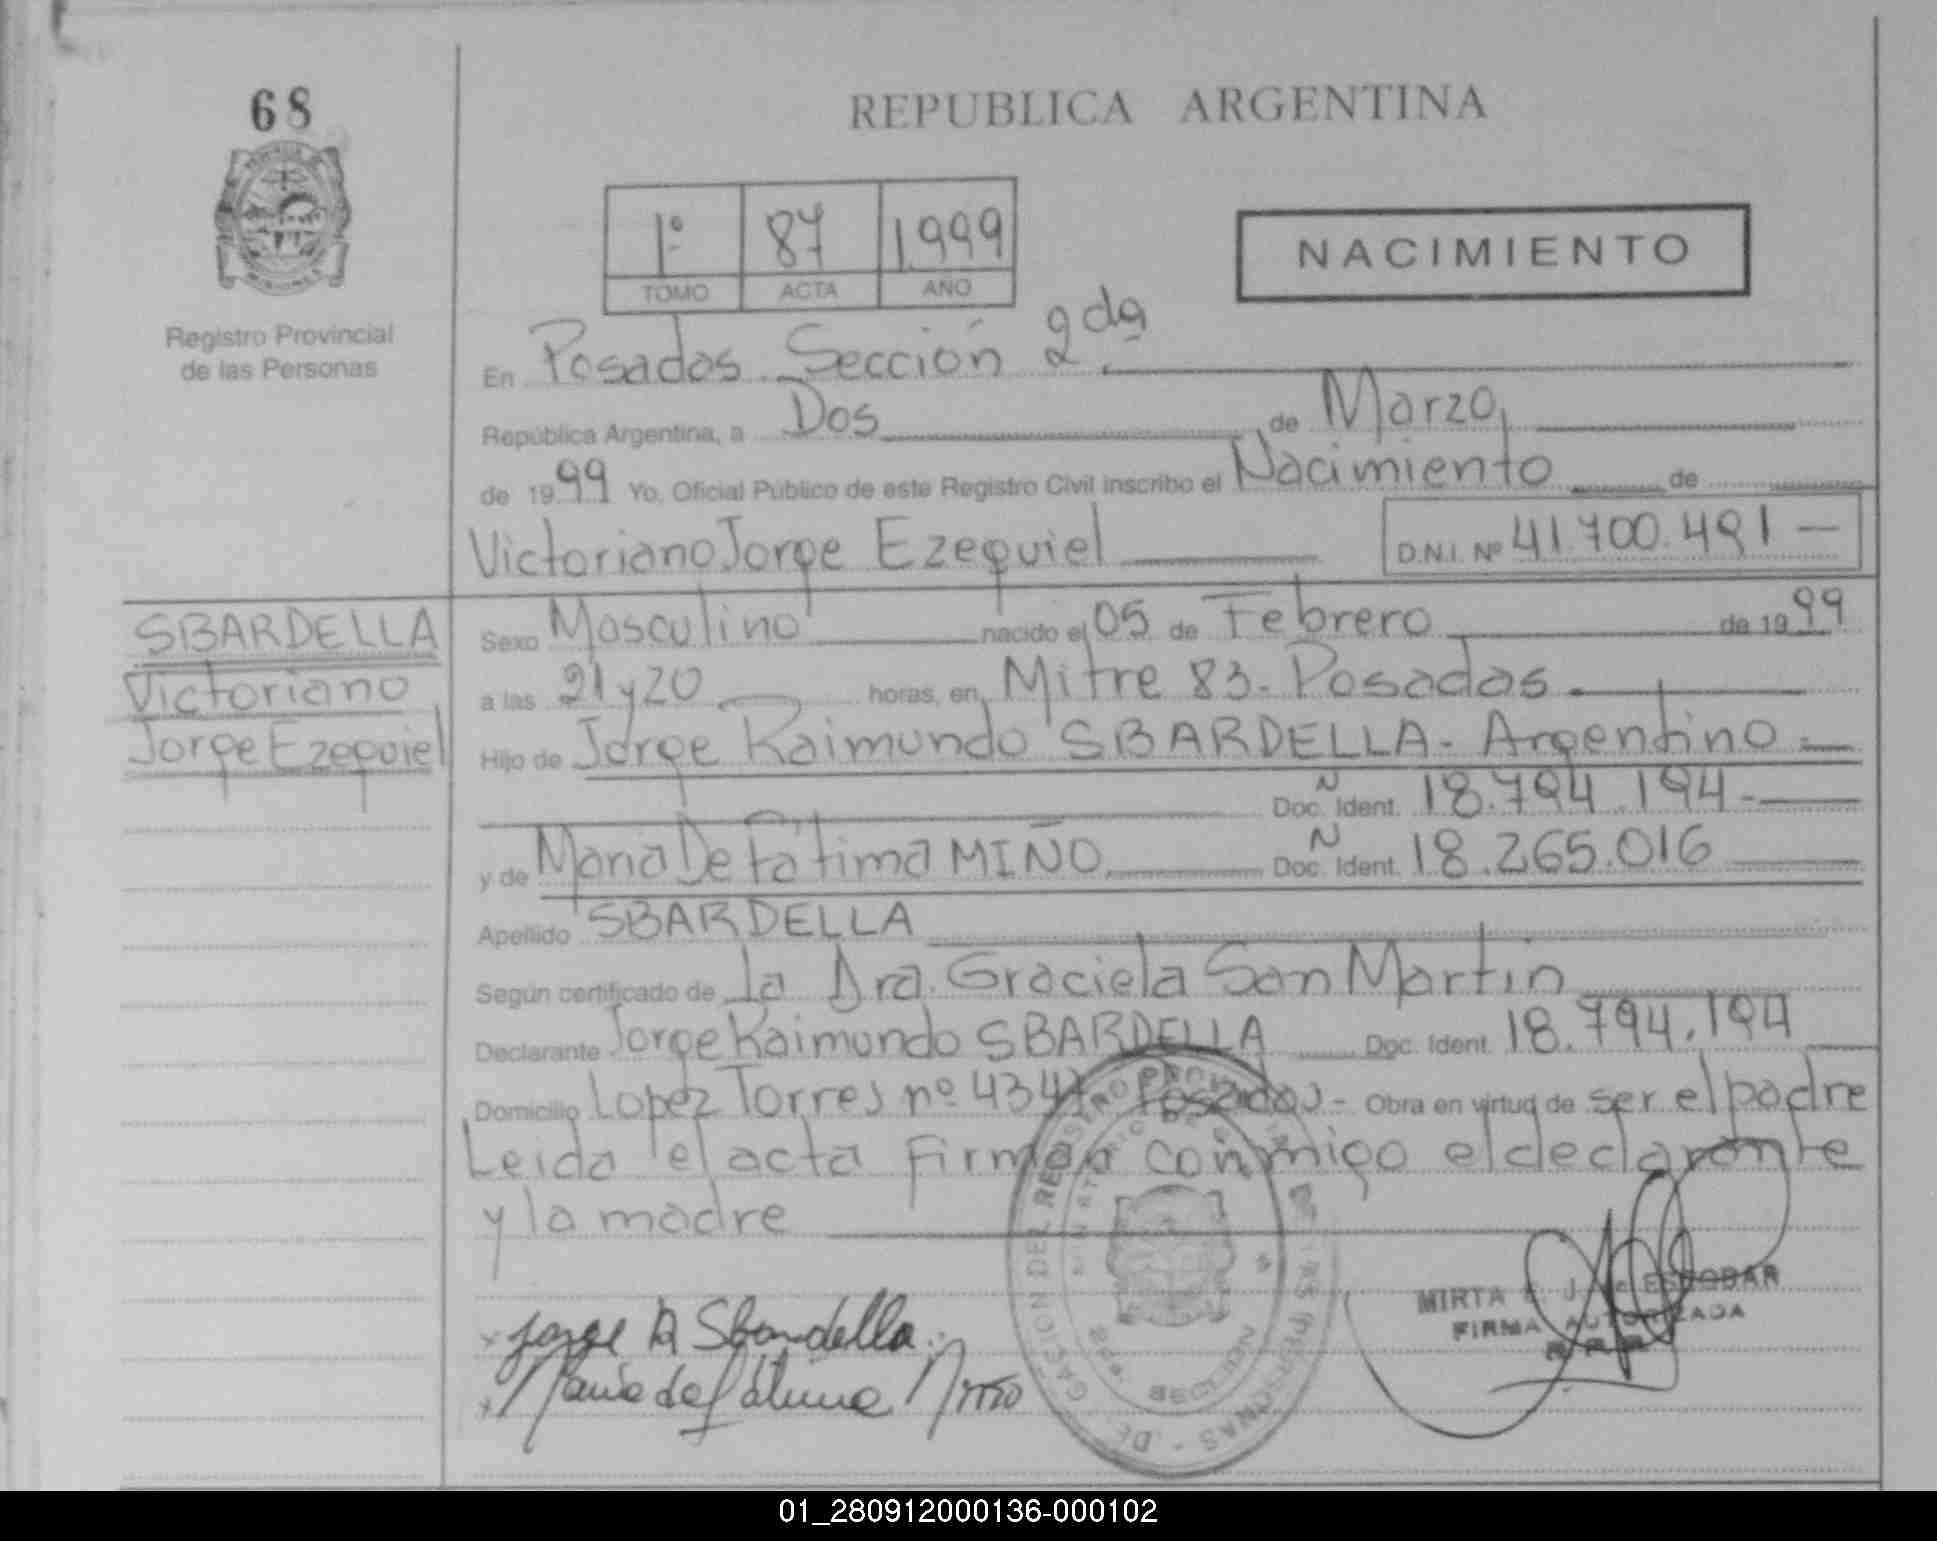 68
REPUBLICA ARGENTINA
1º 87 1.999
TOMO ACTA AÑO
NACIMIENTO
Registro Provincial
de las Personas
En Posadas Sección 2da.
República Argentina, a Dos de Marzo
de 1999 Yo, Oficial Público de este Registro Civil inscribo el Nacimiento de
Victoriano Jorge Ezequiel D.N.I. Nº 41.700.491
SBARDELLA
Victoriano
Jorge Ezequiel
Sexo Masculino nacido el 05 de Febrero de 1999
a las 21 y 20 horas, en Mitre 83. Posadas.
Hijo de Jorge Raimundo SBARDELLA - Argentino
Doc. Ident. 18.794.194
y de Maria De Fátima MIÑO Doc. Ident. 18.265.016
Apellido SBARDELLA
Según certificado de la Dra. Graciela San Martín
Declarante Jorge Raimundo SBARDELLA Doc. Ident. 18.794.194
Domicilio Lopez Torres nº 4347 Posadas - Obra en virtud de ser el padre
Leida el acta firman conmigo el declarante
y la madre
Jorge R Sbardella
Maria de Fátima Miño
MIRTA ESCOBAR
FIRMA AUTORIZADA
01_280912000136-000102